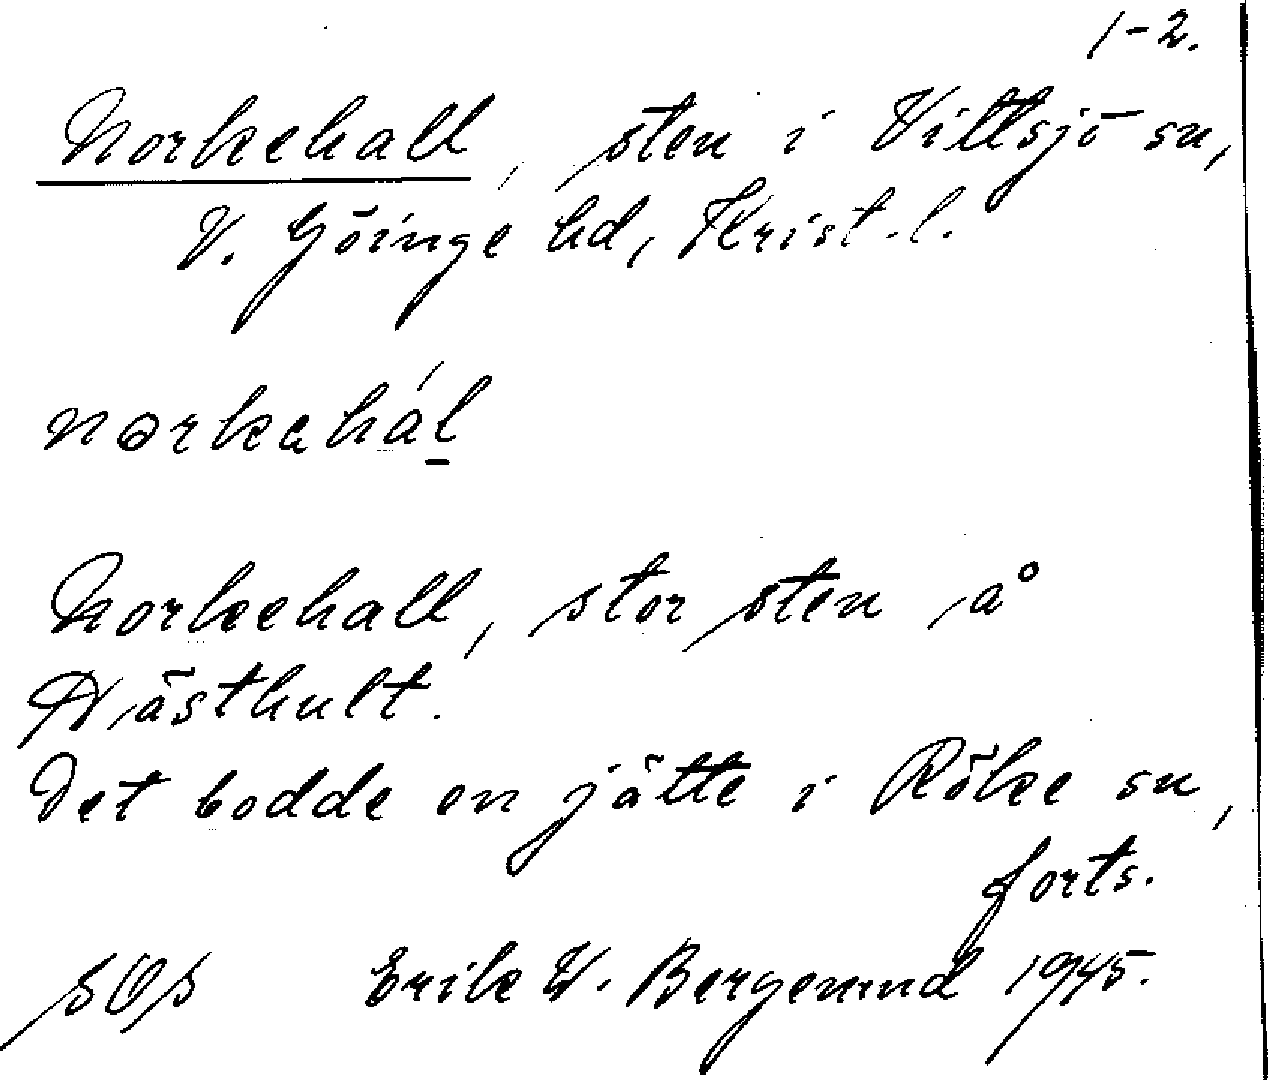 1-2.
Norkehall, sten i Vittsjö sn,
V. Göinge hd, Krist. l.
Norkehall, stor sten å
Hästhult.
Det bodde en jätte i Röke sn,
forts.
SOS Erik W. Bergemund 1945.